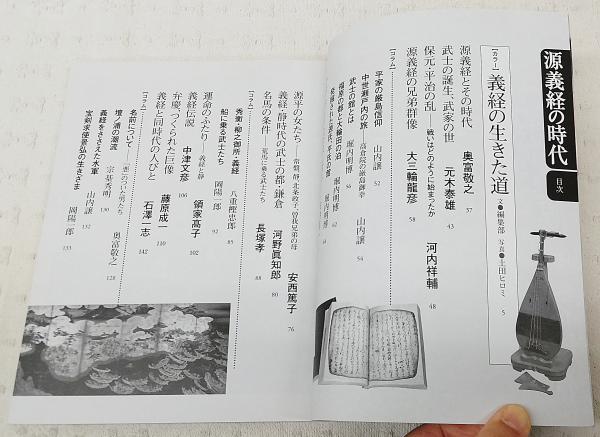 源義経の時代 目次
【カラー】義経の生きた道 文●編集部 写真●土田ヒロミ 5
源義経とその時代 奥富敬之 37
武士の誕生、武家の世 元木泰雄 43
保元・平治の乱――戦いはどのように始まったか 河内祥輔 48
源義経の兄弟群像 大三輪龍彦 58
【コラム】
平家の厳島信仰 山内譲 52
中世瀬戸内の旅――高倉院の厳島御幸 山内譲 54
武士の館とは 堀内明博 56
福原の都と大輪田の泊 堀内明博 62
堀内明博 64
源平の女たち――常盤、静、北条政子、曽我兄弟の母 安西篤子 76
義経・静時代の武士の都・鎌倉 河野眞知郎 80
名馬の条件――荒馬に乗る武士たち 長塚孝 88
【コラム】
秀衡・柳之御所・義経 八重樫忠郎 85
船に乗る武士たち 岡陽一郎 92
運命のふたり――義経と静 領家高子 102
義経伝説 中津文彦 106
弁慶、つくられた巨像 藤原成一 110
義経と同時代の人びと 石澤一志 142
【コラム】
名前について――「悪」のついた男たち 奥富敬之 128
壇ノ浦の潮流 宗基秀明 130
義経をささえた水軍 山内譲 132
宝剣求使景弘の生きざま 岡陽一郎 133